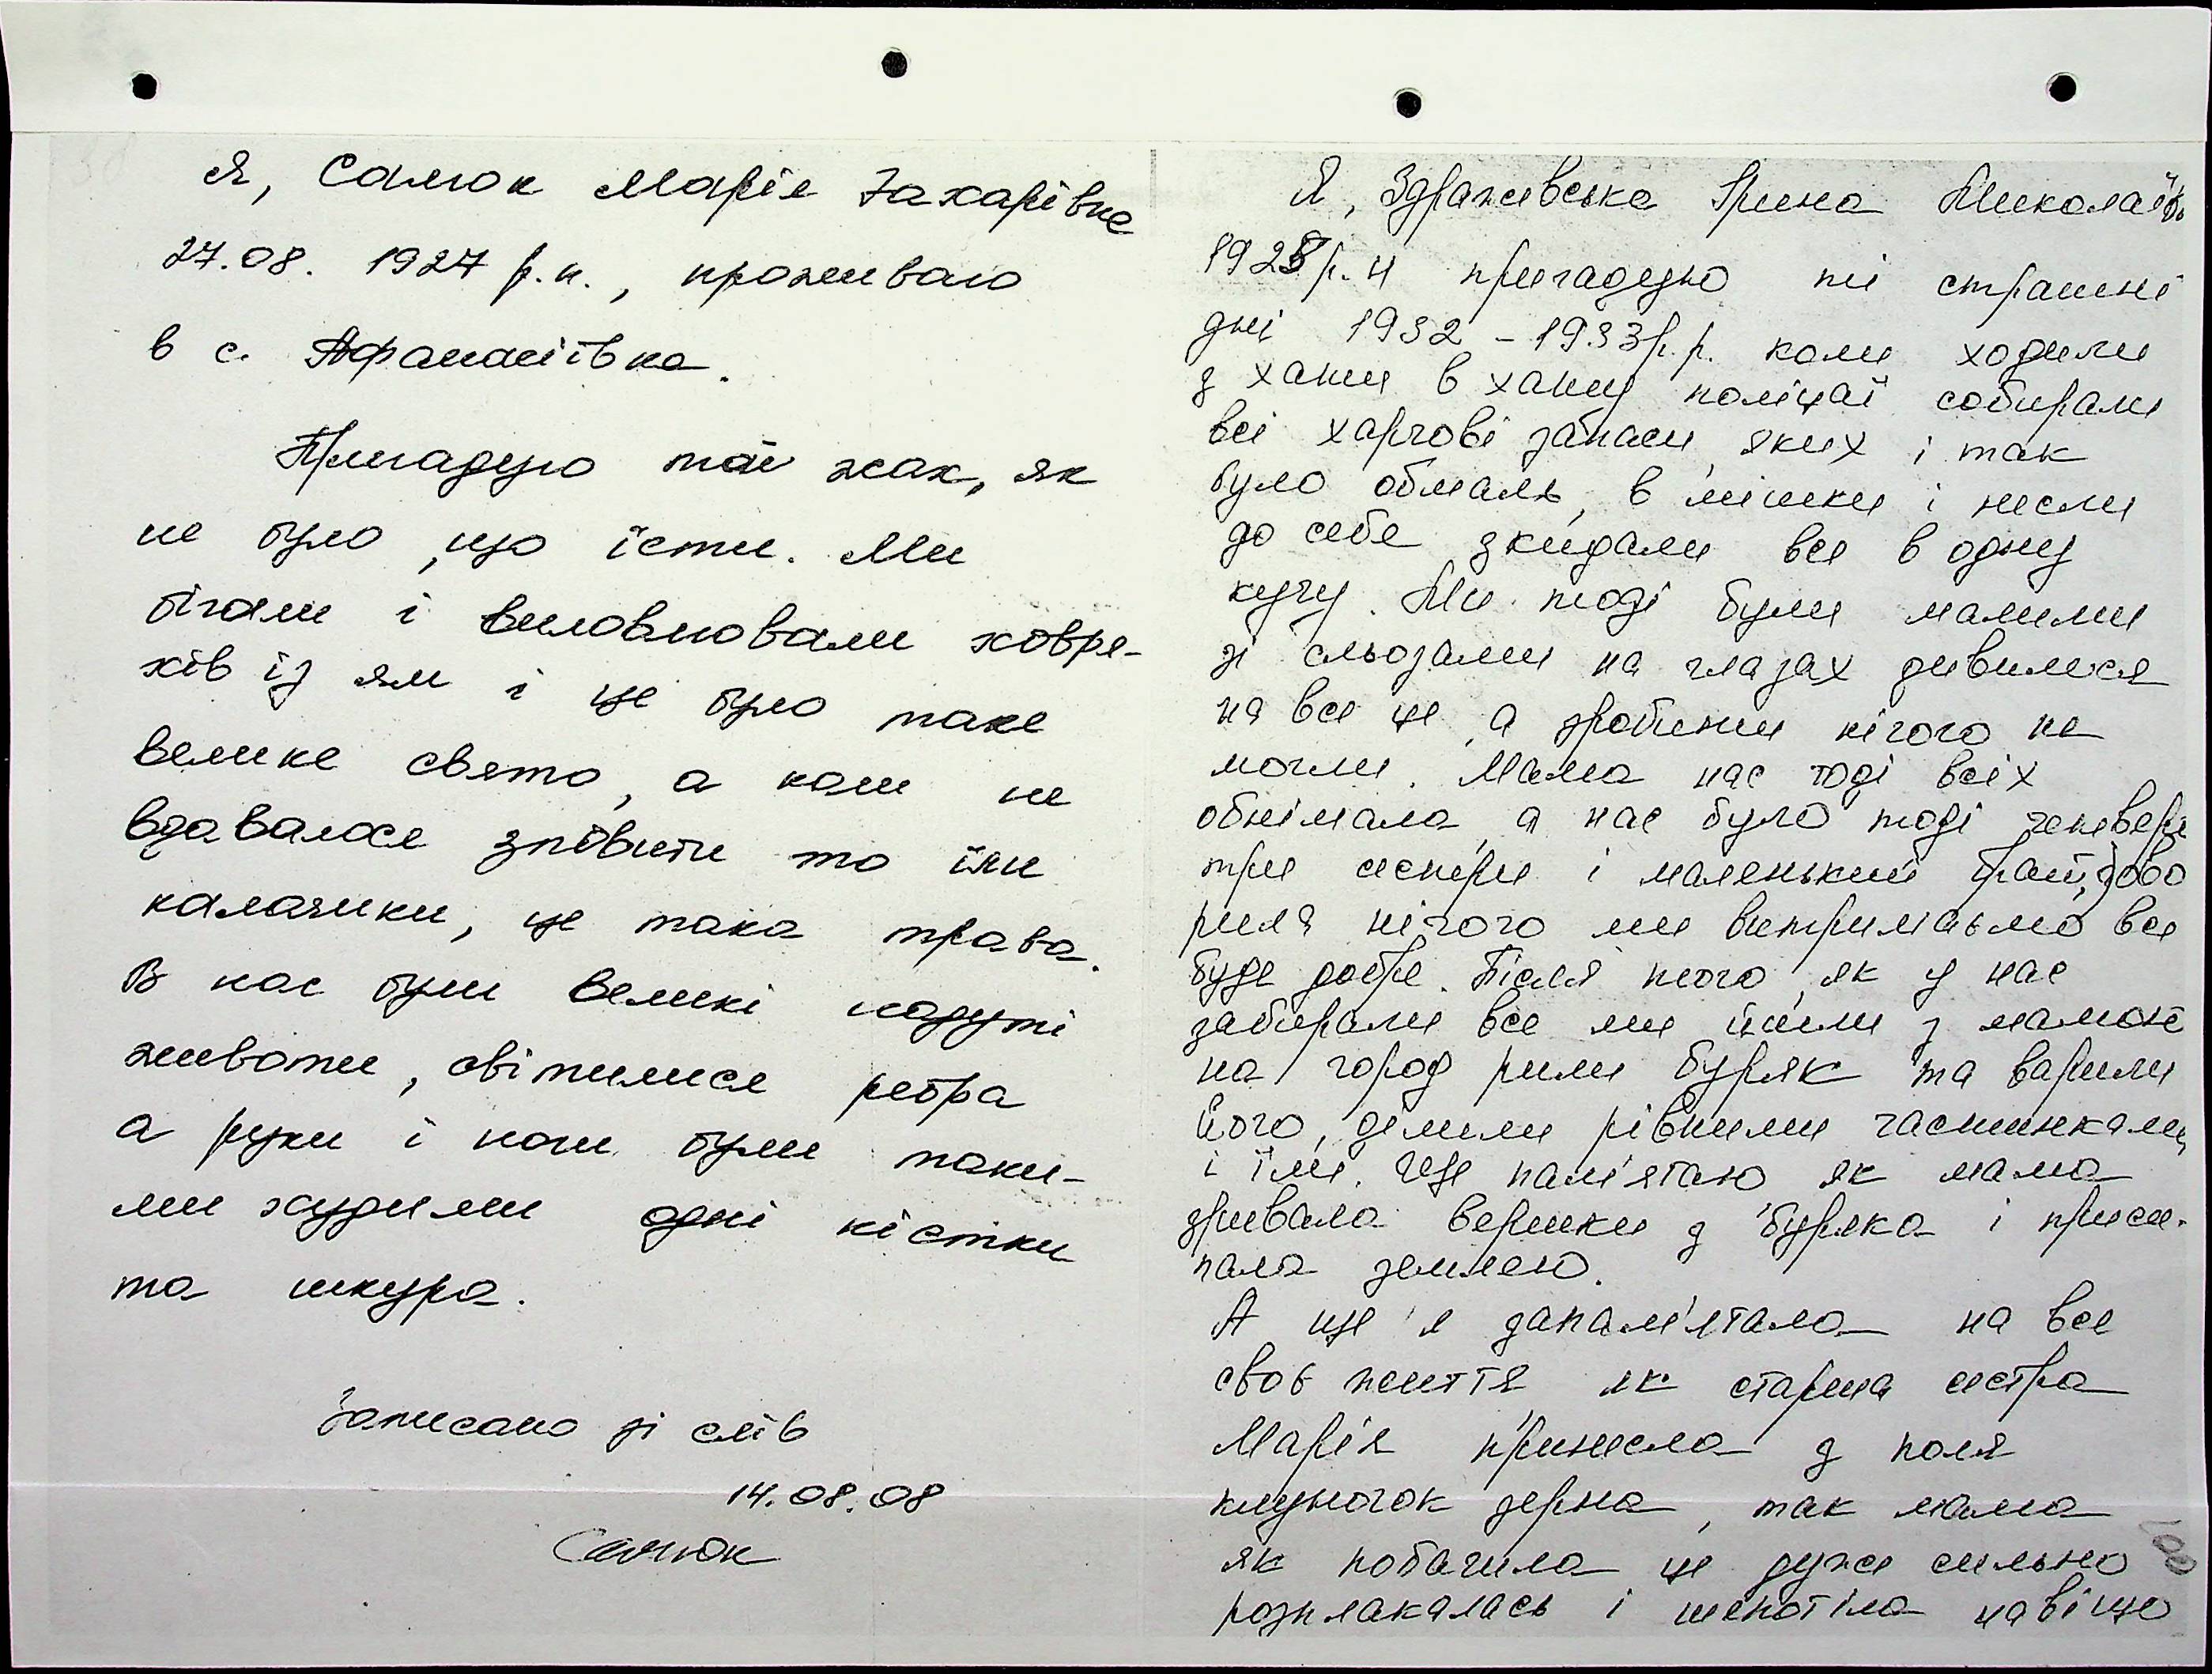 Я, Салюк Марія Захарівна
27.08. 1927 р.н., проживаю
в с. Афанасіївка.
Пригадую той жах, як
не було, що їсти. Ми
бігали і виловлювали ховра-
хів із ям і це було таке
велике свято, а коли не
вдавалося зловити то їли
калачики, це така трава.
В нас були великі надуті
животи, світилися ребра
а руки і ноги були таки-
ми худими одні кістки
та шкура.
Записано зі слів
14.08.08
Салюк
Я, Здражевська Ірина Миколаївн
1928 р.н пригадую ті страшні
дні 1932 - 1933 р.р. коли ходили
з хати в хату поліцаї собирали
всі харчові запаси, яких і так
було обмаль, в мішки і несли
до себе зкидали все в одну
кучу. Ми тоді були малими
зі сльозами на глазах дивилися
на все це, а зробити нічого не
могли. Мама нас тоді всіх
обнімала, а нас було тоді четверо
три сестри і маленький брат, гово
рила нічого ми витримаємо все
буде добре. Після того, як у нас
забирали все ми йшли з мамою
на город рили буряк та варили
його, ділили рівними частинками
і їли. Ще пам'ятаю як мама
зривала вершки з буряка і приси-
пала землею.
А ще я запам'ятала на все
своє життя, як старша сестра
Марія принесла з поля
клуночок зерна, так мама
як побачила це дуже сильно
розплакалась і шепотіла навіщо
100